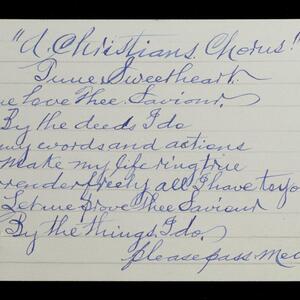 "A. Christians. Chorus."
Tune Sweetheart
me love Thee. Saviour.
By the deeds I do
my words and actions
Make my life ring true
render freely all I have to yo
Let me prove Thee Saviour
By the things. I do.
please pass. Me